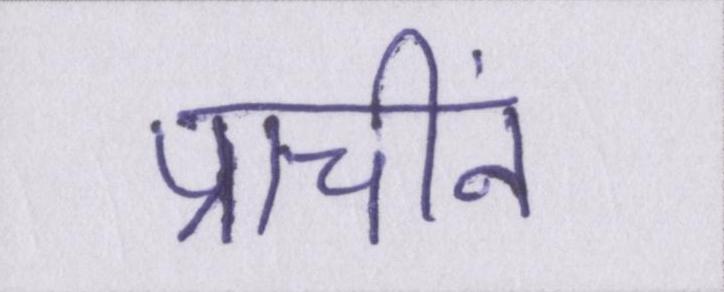 प्राचींन